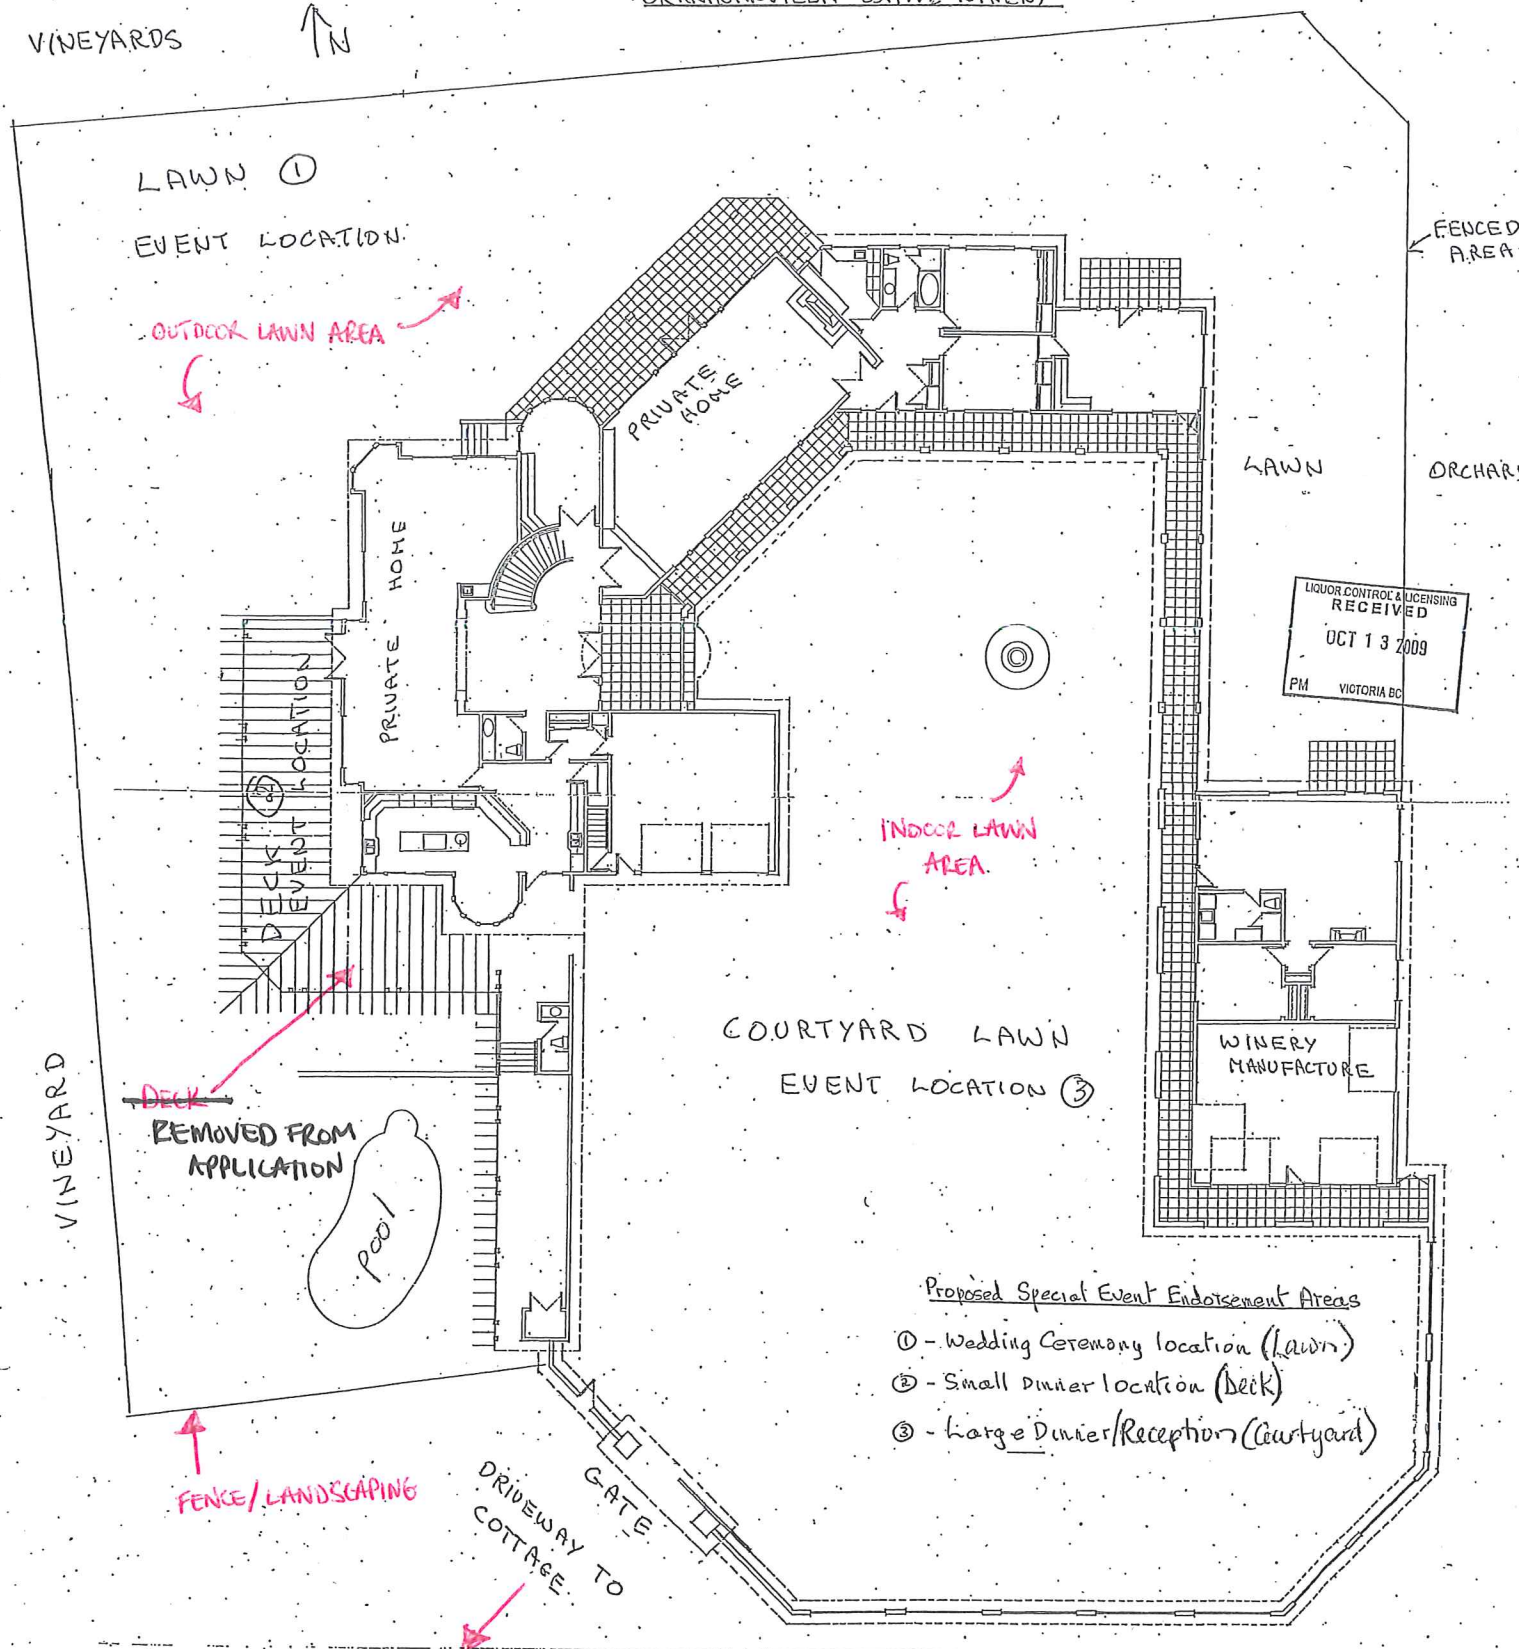 VINEYARDS
N
LAWN ①
EVENT LOCATION
OUTDOOR LAWN AREA
FENCED
AREA
PRIVATE
HOME
LAWN
PRIVATE HOME
LIQUOR CONTROL & LICENSING
RECEIVED
OCT 13 2009
PM VICTORIA BC
DECK ②
EVENT LOCATION
INDOOR LAWN
AREA
COURTYARD LAWN
EVENT LOCATION ③
WINERY
MANUFACTURE
VINEYARD
DECK
REMOVED FROM
APPLICATION
POOl
Proposed Special Event Endorsement Areas
① - Wedding Ceremony location (Lawn)
② - Small Dinner location (Deck)
③ - Large Dinner/Reception (Courtyard)
FENCE/LANDSCAPING
GATE
DRIVEWAY TO
COTTAGE